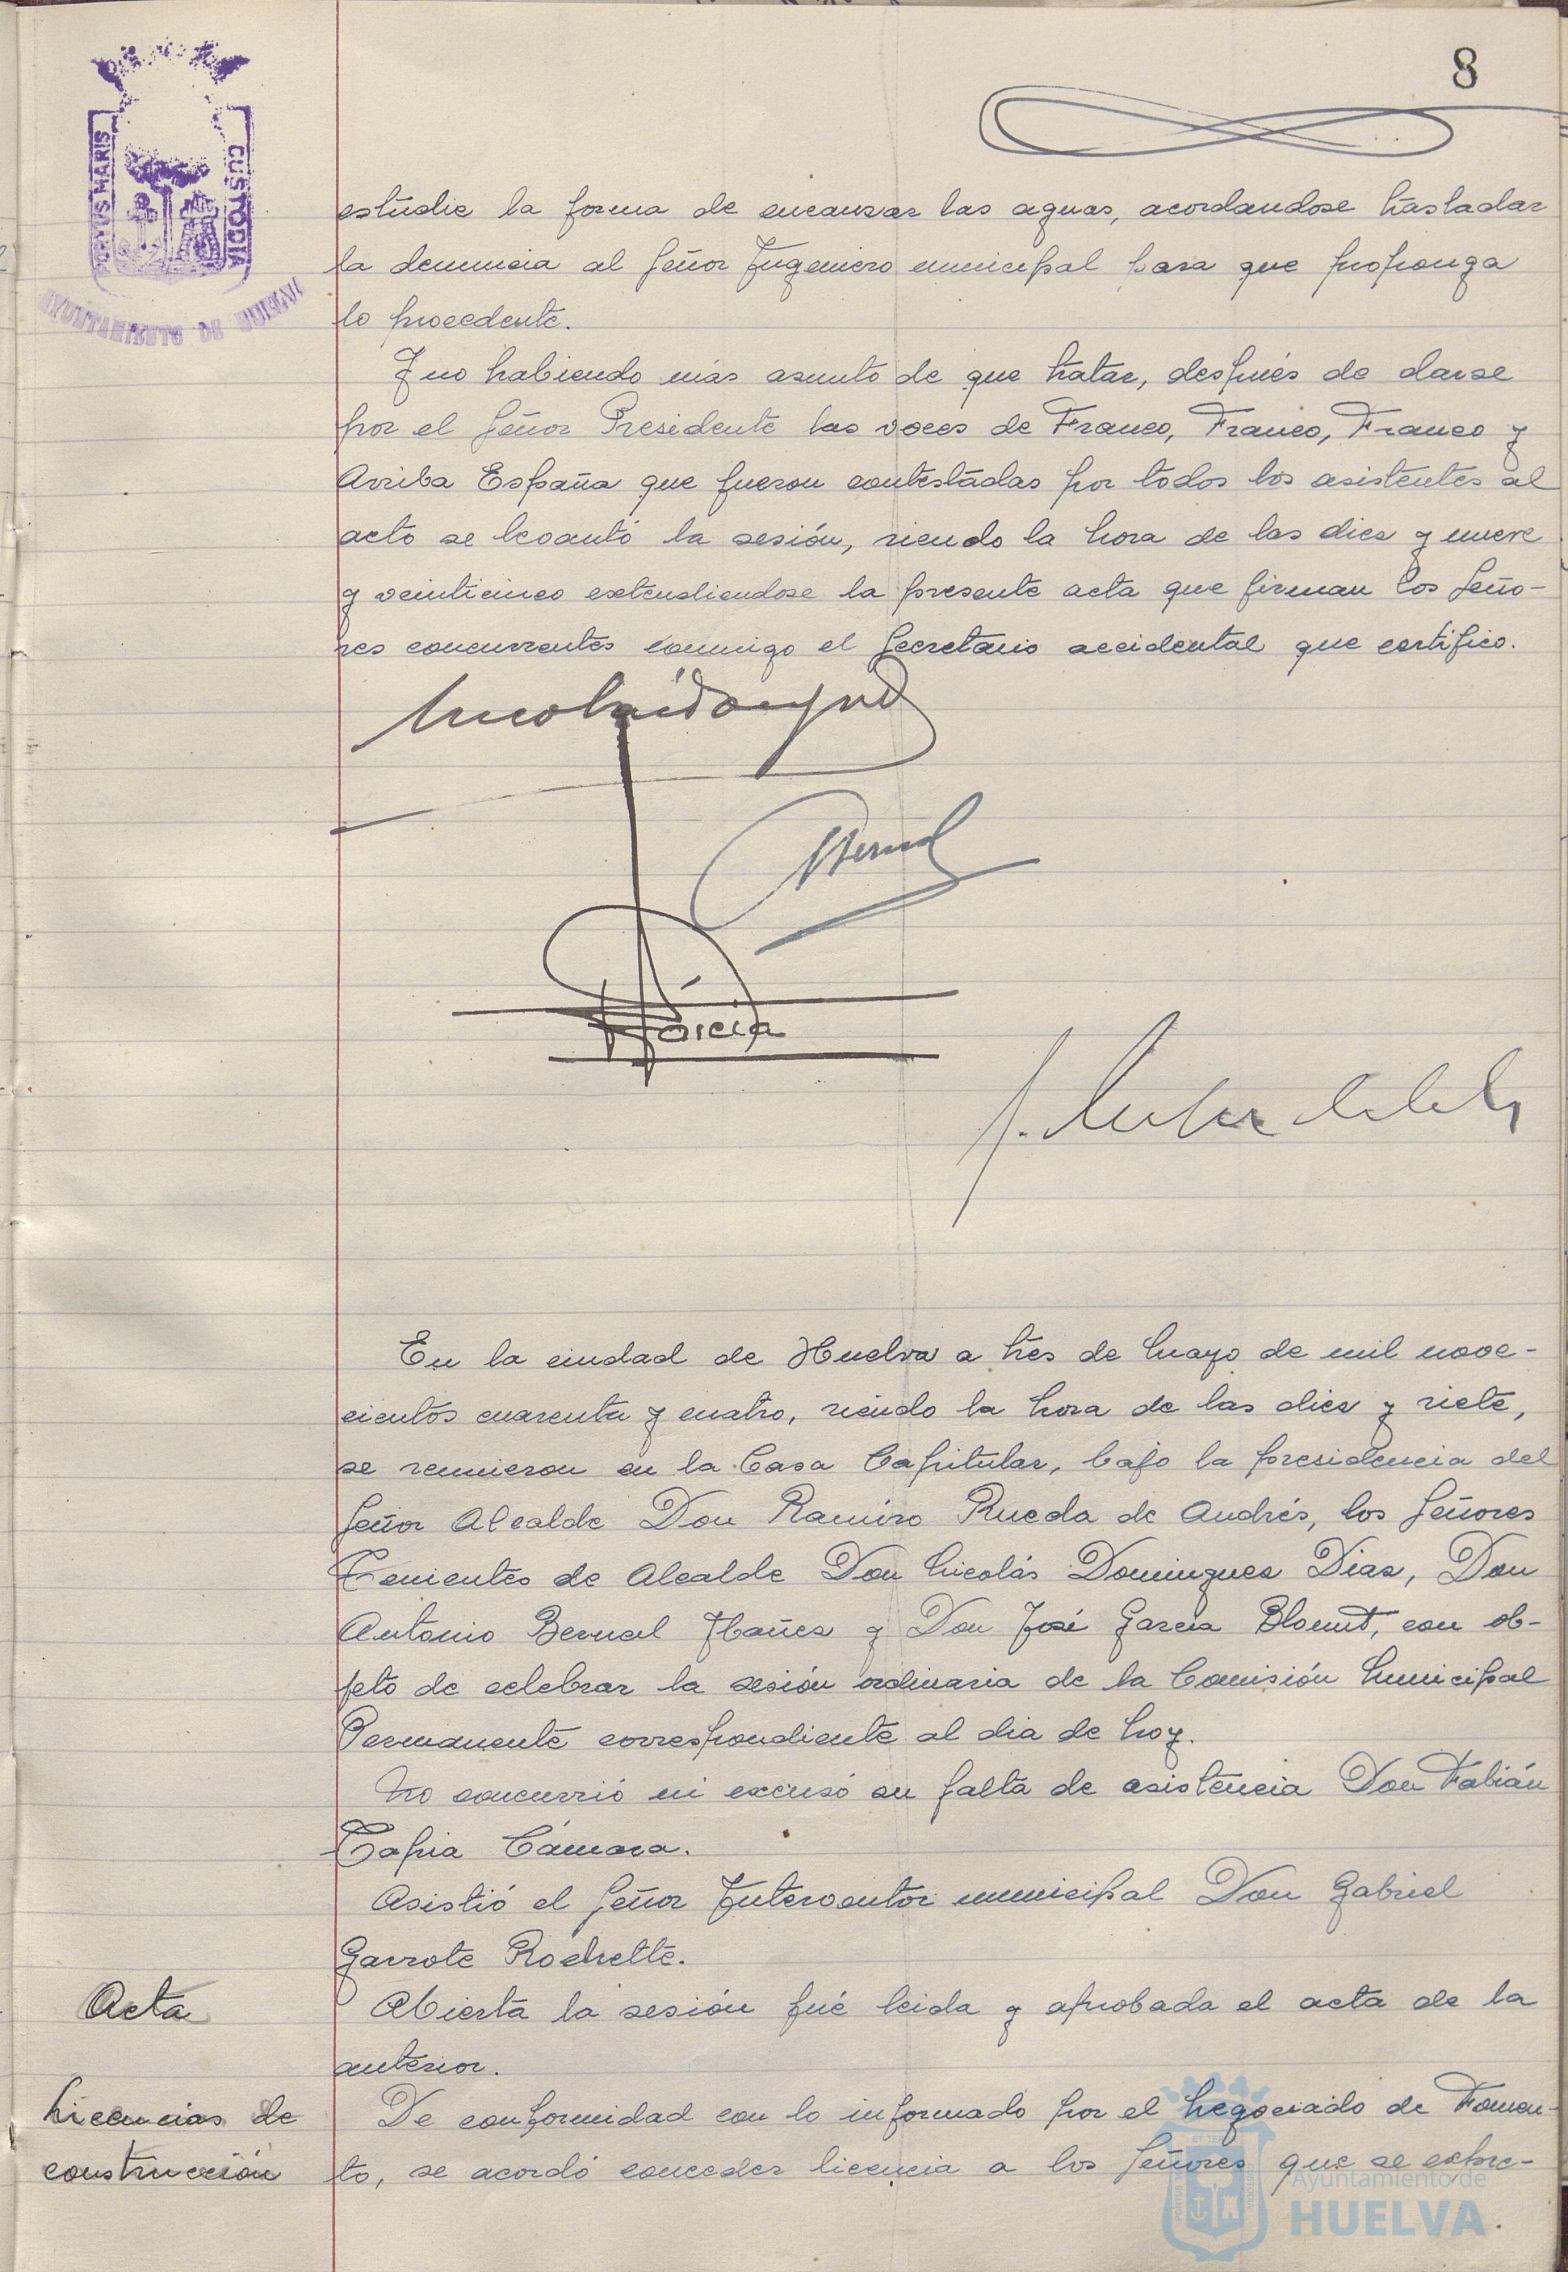 8
PORTUS MARIS
CUSTODIA
AYUNTAMIENTO DE HUELVA
estudie la forma de encauzar las aguas, acordandose trasladar
la denuncia al Señor Ingeniero municipal para que proponga
lo procedente.
Y no habiendo más asunto de que tratar, después de darse
por el Señor Presidente las voces de Franco, Franco, Franco y
Arriba España que fueron contestadas por todos los asistentes al
acto se levantó la sesión, siendo la hora de las diez y nueve
y veinticinco extendiendose la presente acta que firman los Seño-
res concurrentes conmigo el Secretario accidental que certifico.
Bernal
García
En la ciudad de Huelva a tres de Mayo de mil nove-
cientos cuarenta y cuatro, siendo la hora de las diez y siete,
se reunieron en la Casa Capitular, bajo la presidencia del
Señor Alcalde Don Ramiro Rueda de Andrés, los Señores
Tenientes de Alcalde Don Nicolás Dominguez Diaz, Don
Antonio Bernal Ibañez y Don José García Blount, con ob-
jeto de celebrar la sesión ordinaria de la Comisión Municipal
Permanente correspondiente al dia de hoy.
No concurrió ni excusó su falta de asistencia Don Fabián
Tapia Cámara.
Asistió el Señor Interventor municipal Don Gabriel
Garrote Rochette.
Acta
Abierta la sesión fué leida y aprobada el acta de la
anterior.
Licencias de
construcción
De conformidad con lo informado por el Negociado de Fomen-
to, se acordó conceder licencia a los Señores que se expre-
Ayuntamiento de
HUELVA